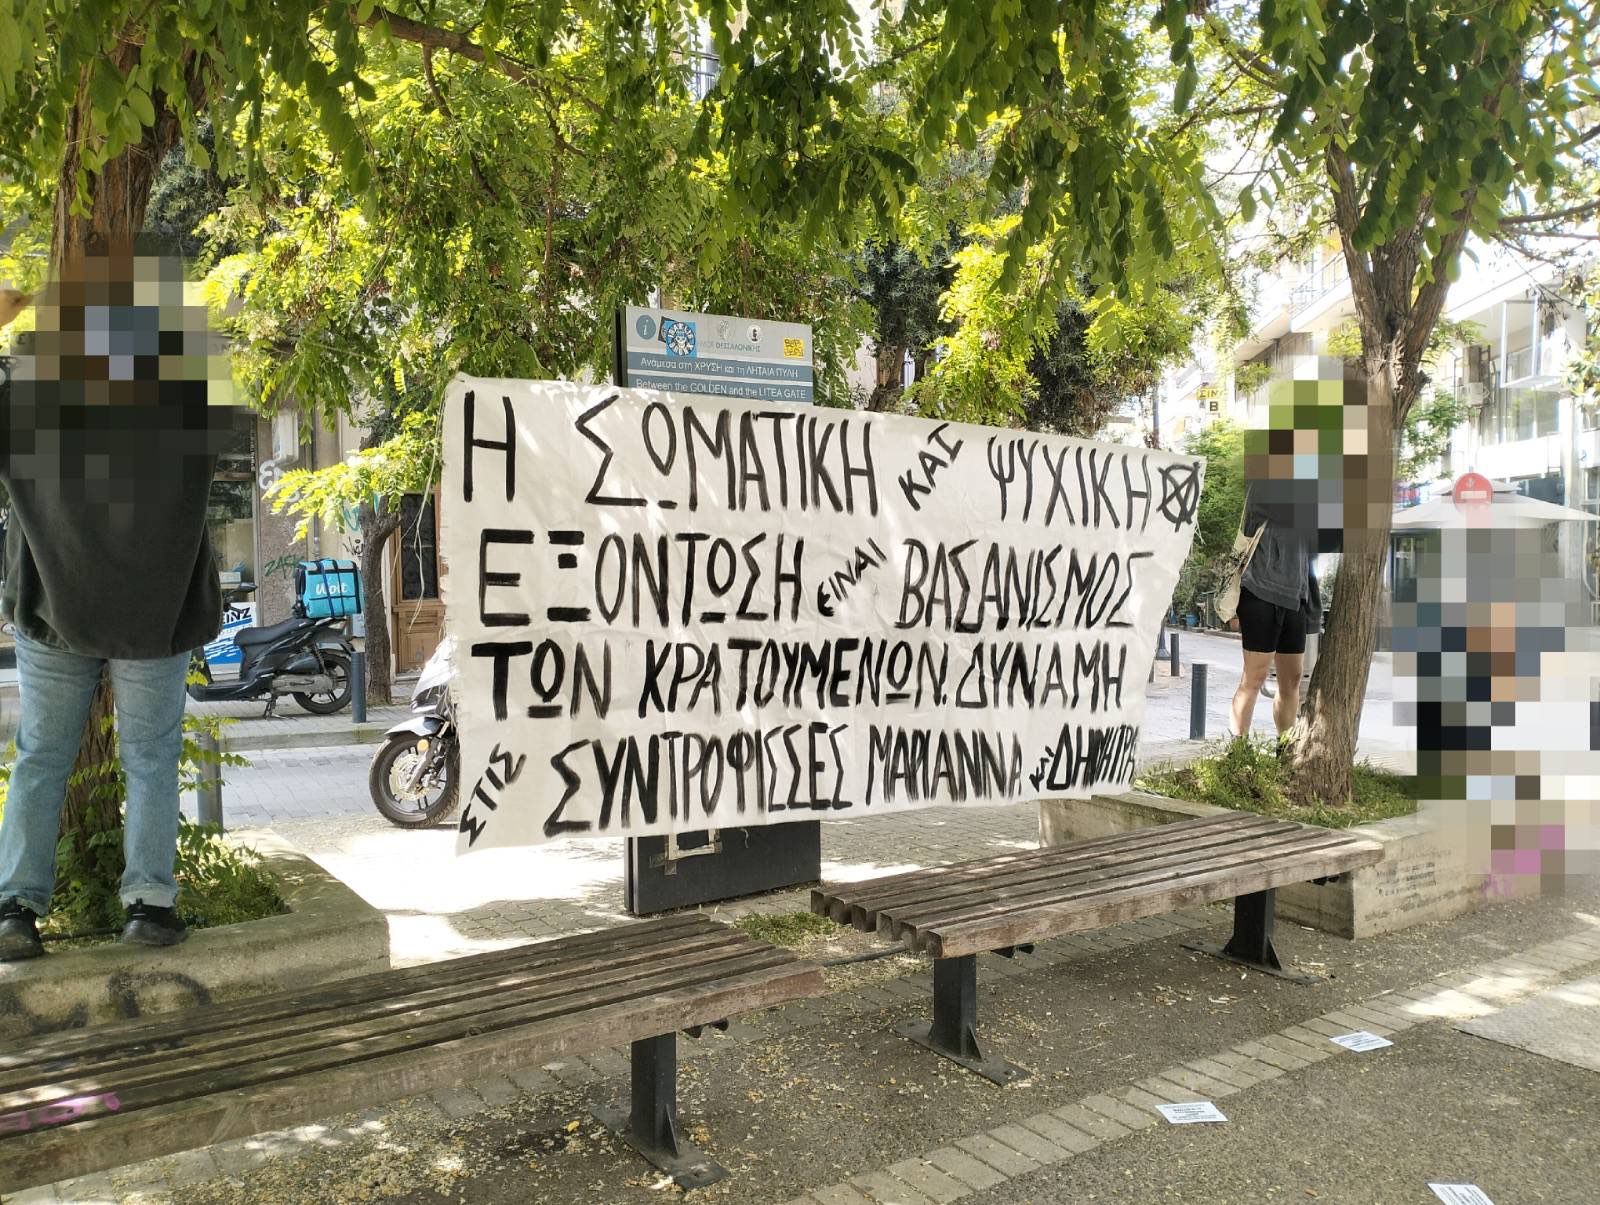 Ανάμεσα στη ΧΡΥΣΗ και τη ΛΗΤΑΙΑ ΠΥΛΗ
Between the GOLDEN and the LITEA GATE
Η ΣΩΜΑΤΙΚΗ ΚΑΙ ΨΥΧΙΚΗ
ΕΞΟΝΤΩΣΗ ΕΙΝΑΙ ΒΑΣΑΝΙΣΜΟΣ
ΤΩΝ ΚΡΑΤΟΥΜΕΝΩΝ. ΔΥΝΑΜΗ
ΣΤΙΣ ΣΥΝΤΡΟΦΙΣΣΕΣ ΜΑΡΙΑΝΝΑ ΔΗΜΗΤΡΑ
Wolt